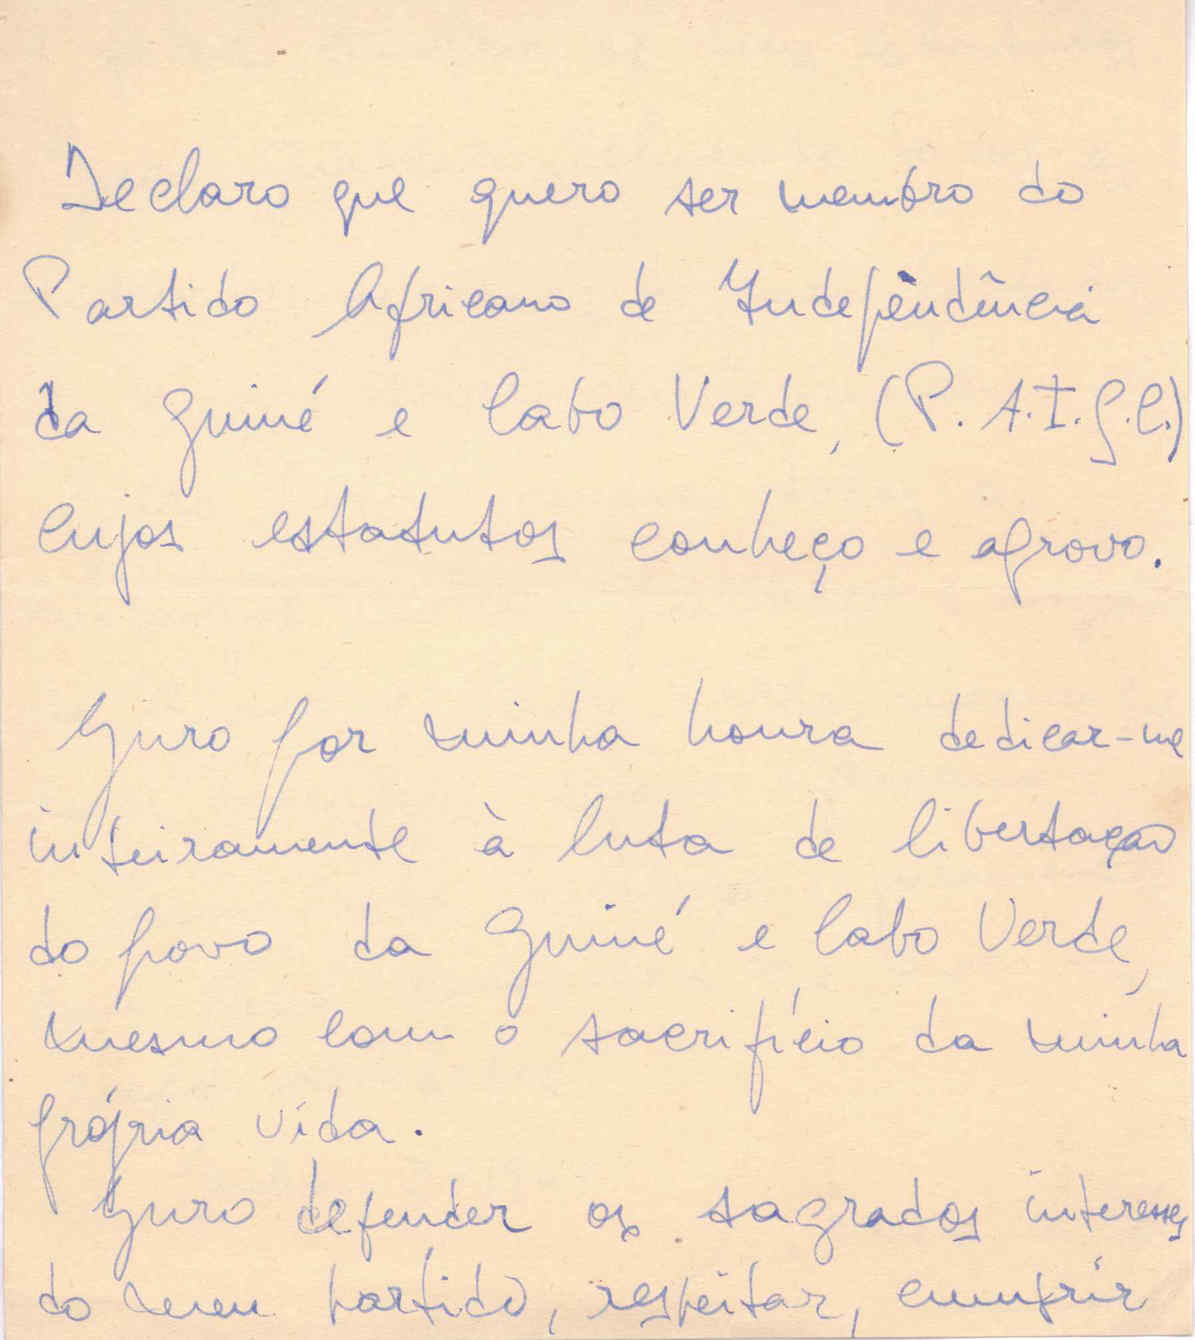 Declaro que quero ser membro do
Partido Africano de Independência
da Guiné e Cabo Verde, (P.A.I.G.C.)
Cujos estatutos conheço e aprovo.
Juro por minha honra dedicar-me
inteiramente à luta de libertação
do povo da Guiné e Cabo Verde,
mesmo com o sacrifício da minha
própria vida.
Juro defender os sagrados interesses
do meu partido, respeitar, cumprir